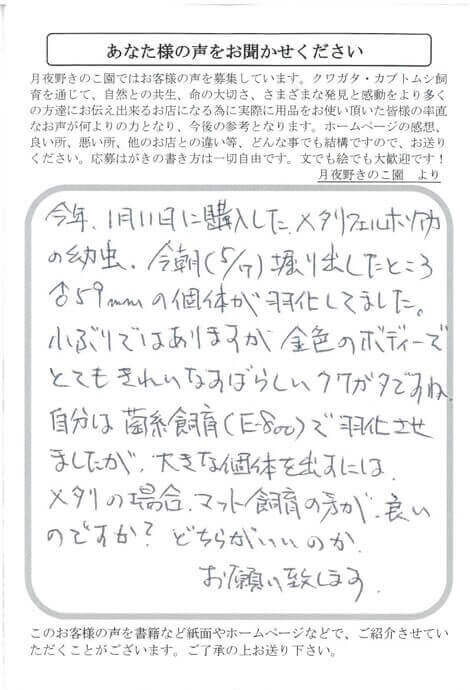 あなた様の声をお聞かせください
月夜野きのこ園ではお客様の声を募集しています。クワガタ・カブトムシ飼
育を通じて、自然との共生、命の大切さ、さまざまな発見と感動をより多く
の方達にお伝え出来るお店になる為に実際に用品をお使い頂いた皆様の率直
なお声が何よりの力となり、今後の参考となります。ホームページの感想、
良い所、悪い所、他のお店との違い等、どんな事でも結構ですので、お送り
ください。応募はがきの書き方は一切自由です。文でも絵でも大歓迎です！
月夜野きのこ園 より
今年、1月11日に購入した、メタリフェルホソアカ
の幼虫、今朝(5/17)掘り出したところ
♂59mmの個体が羽化してました。
小ぶりではありますが、金色のボディーで
とてもきれいなすばらしいクワガタですね。
自分は菌糸飼育(E-800)で羽化させ
ましたが、大きな個体を出すには、
メタリの場合、マット飼育の方が、良い
のですか？どちらがいいのか、
お願い致します。
このお客様の声を書籍など紙面やホームページなどで、ご紹介させてい
ただくことがございます。ご了承の上お送り下さい。